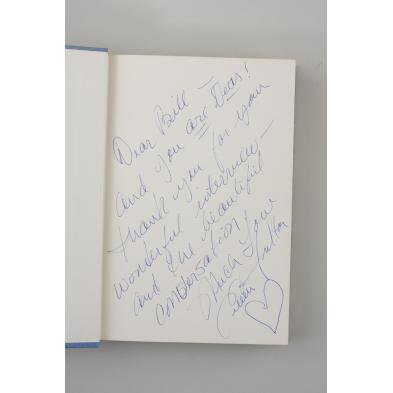 Dear Bill —
and you are Dear!
thank you for your
wonderful interview —
and the beautiful
conversation
Much love